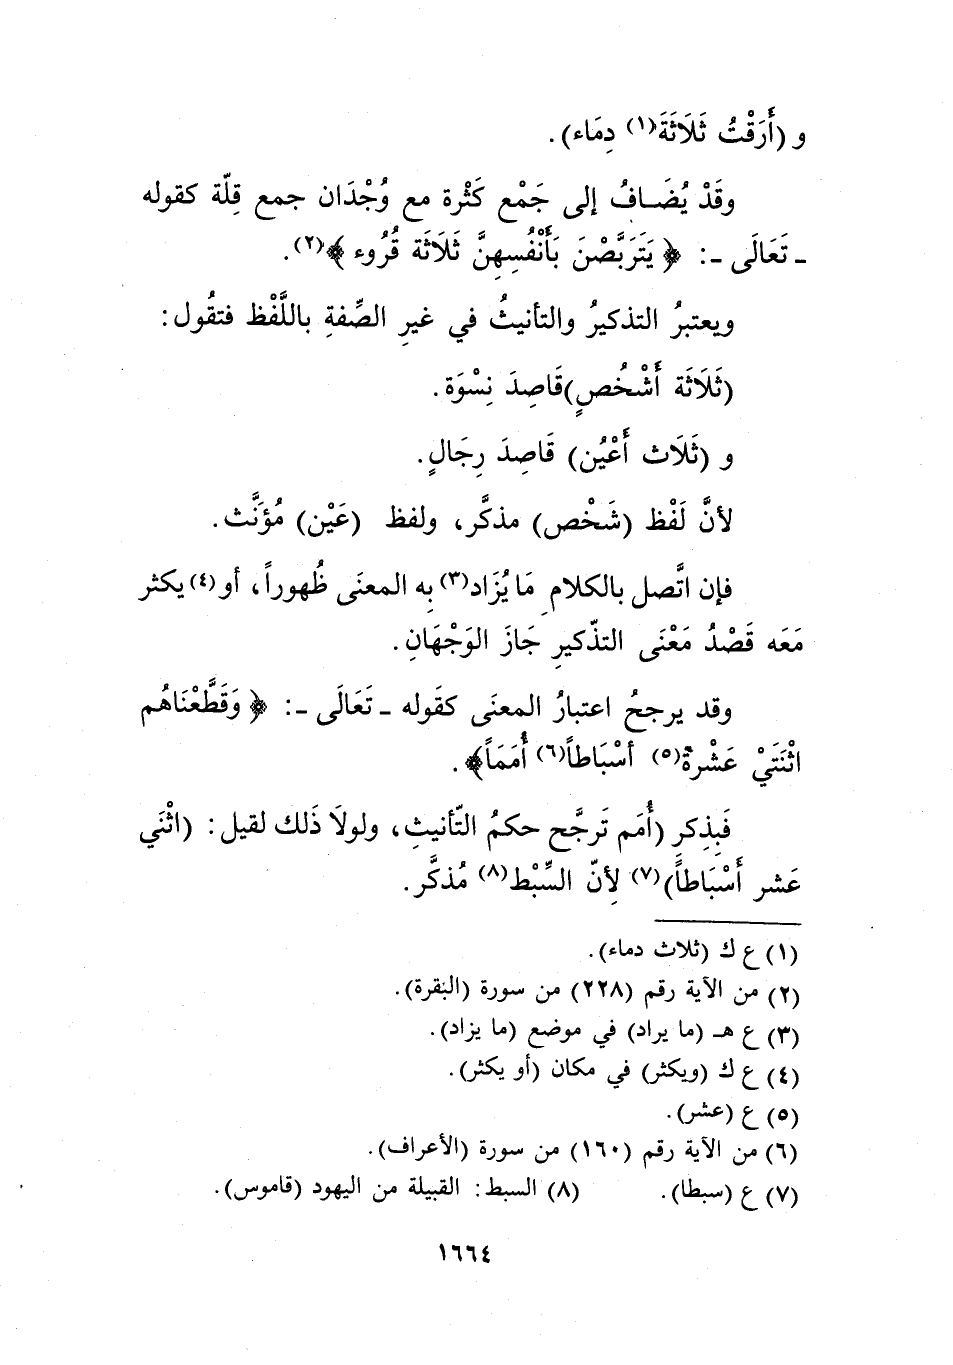 و (أَرَقْتُ ثَلَاثَةَ(١) دِمَاء).
وقَدْ يُضَافُ إلى جَمْع كَثْرة مع وُجْدَان جمع قِلّة كقوله
ـ تَعَالَى ـ: ﴿يَتَرَبَّصْنَ بَأَنْفُسِهِنَّ ثَلَاثَة قُرُوء﴾(٢).
ويعتبرُ التذكيرُ والتأنيثُ في غيرِ الصِّفةِ باللَّفْظ فتقُول:
(ثَلَاثَة أَشْخُصٍ)قَاصِدَ نِسْوَة.
و (ثَلَاث أَعْيُن) قَاصِدَ رِجَالٍ.
لأنَّ لَفْظ (شَخْص) مذكَّر، ولفظ (عَيْن) مُؤَنَّث.
فإن اتَّصل بالكلامِ مَا يُزَاد(٣) بِه المعنَى ظُهوراً، أو(٤) يكثر
مَعَه قَصْدُ مَعْنَى التذّكيرِ جَازَ الوَجْهَانِ.
وقد يرجحُ اعتبارُ المعنَى كقَوله ـ تَعَالَى ـ: ﴿وَقَطَّعْنَاهُم
اثْنَتَيْ عَشْرةَ(٥) أسْبَاطاً(٦) أُمَمَاً﴾.
فَبِذِكرِ (أُمَم تَرجَّح حكمُ التّأنيثِ، ولولاَ ذَلك لقيل: (اثْنَي
عَشر أَسْبَاطَاً)(٧) لِأنّ السِّبْط(٨) مُذكَّر.
(١) ع ك (ثلاث دماء).
(٢) من الآية رقم (٢٢٨) من سورة (البقرة).
(٣) ع هـ (ما يراد) في موضع (ما يزاد).
(٤) ع ك (ويكثر) في مكان (أو يكثر).
(٥) ع (عشر).
(٦) من الآية رقم (١٦٠) من سورة (الأعراف).
(٧) ع (سبطا). (٨) السبط: القبيلة من اليهود (قاموس).
١٦٦٤